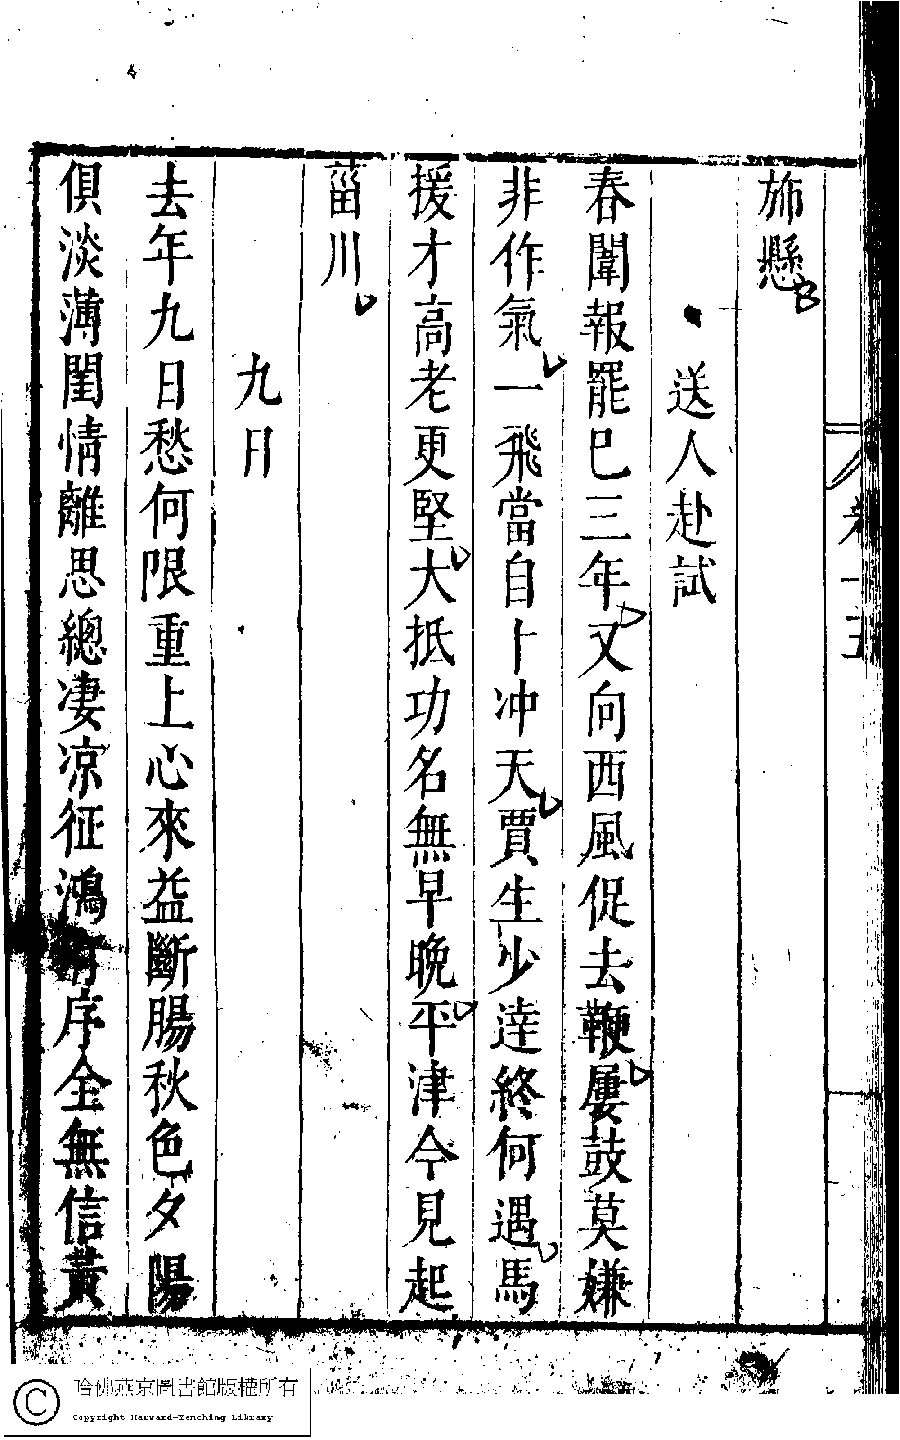 斾懸
送人赴試
春闈報罷已三年又向西風促去鞭屢鼓莫嫌
非作氣一飛當自卜冲天賈生少達終何遇馬
援才高老更堅大抵功名無早晚平津今見起
菑川
九日
去年九日愁何限重上心來益斷腸秋色夕陽
俱淡薄閨情離思總凄凉征鴻有序全無信黃
哈佛燕京圖書館版權所有
Copyright Harvard-Yenching Library